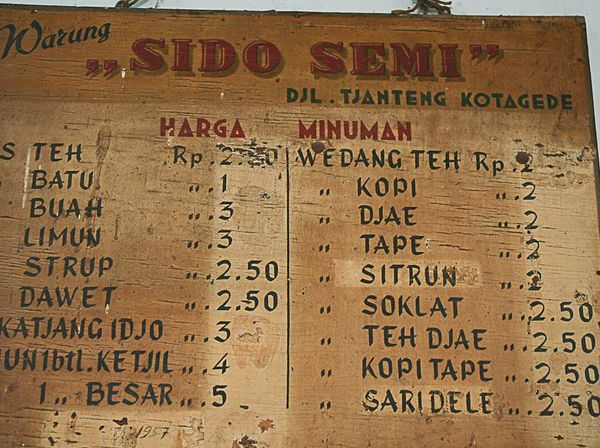 Warung
„SIDO SEMI”
DJL. TJANTENG KOTAGEDE
HARGA MINUMAN
S TEH Rp. 2.50
BATU „. 1
BUAH „. 3
LIMUN „. 3
STRUP „. 2.50
DAWET „. 2.50
KATJANG IDJO „. 3
UN 1btl. KETJIL „. 4
1 „ BESAR „. 5
1957
WEDANG TEH Rp. 2
„ KOPI „. 2
„ DJAE „. 2
„ TAPE „. 2
„ SITRUN „. 2
„ SOKLAT „. 2.50
„ TEH DJAE „. 2.50
„ KOPI TAPE „. 2.50
„ SARIDELE „. 2.50